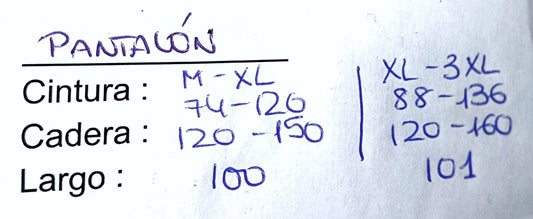 PANTALÓN
M - XL | XL - 3XL
Cintura : 74-126 | 88-136
Cadera : 120-150 | 120-160
Largo : 100 | 101